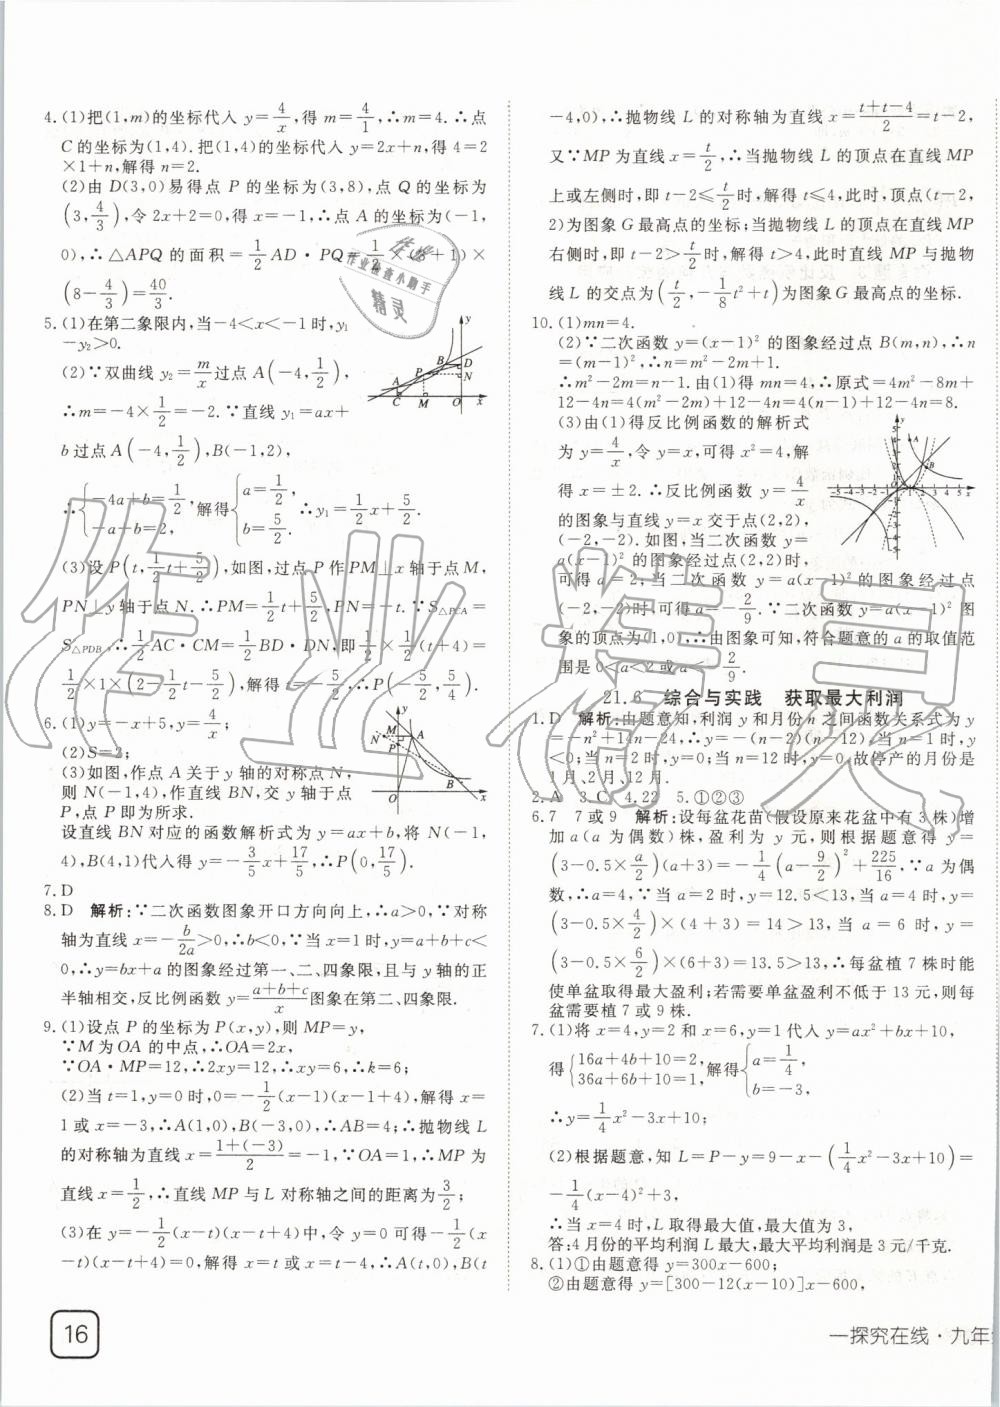 4.(1)把(1,m)的坐标代入 y=4/x,得 m=4/1,∴m=4.∴点
C的坐标为(1,4).把(1,4)的坐标代入 y=2x+n,得4=2
×1+n,解得 n=2.
(2)由 D(3,0)易得点 P 的坐标为(3,8),点 Q 的坐标为
(3,4/3),令2x+2=0,得x=-1,∴点 A 的坐标为(-1,
0),∴△APQ 的面积=1/2AD·PQ
(8-4/3)=40/3.
5.(1)在第二象限内,当-4<x<-1时,y₁
-y₂>0.
(2)∵双曲线 y₂=m/x过点A(-4,1/2),
∴m=-4×1/2=-2.∵直线y₁=ax+
b过点A(-4,1/2),B(-1,2),
∴{-4a+b=1/2, -a+b=2, 解得{a=1/2, b=5/2. ∴y₁=1/2x+5/2.
(3)设P(t,1/2t+5/2),如图,过点P作PM⊥x轴于点M,
PN⊥y轴于点N.∴PM=1/2t+5/2,PN=-t.∵S△PCA=
S△PDB,∴1/2AC·CM=1/2BD·DN,即1/2×1/2(t+4)=
1/2×1×(2-1/2t-5/2),解得t=-5/2,∴P(-5/2,5/4).
6.(1)y=-x+5,y=4/x;
(2)S=3;
(3)如图,作点A关于y轴的对称点N,
则N(-1,4),作直线BN,交y轴于点
P,点P即为所求.
设直线BN对应的函数解析式为y=ax+b,将N(-1,
4),B(4,1)代入得y=-3/5x+17/5,∴P(0,17/5).
7.D
8.D 解析:∵二次函数图象开口方向向上,∴a>0,∵对称
轴为直线x=-b/2a>0,∴b<0,∵当x=1时,y=a+b+c<
0,∴y=bx+a的图象经过第一、二、四象限,且与y轴的正
半轴相交,反比例函数y=(a+b+c)/x图象在第二、四象限.
9.(1)设点P的坐标为P(x,y),则MP=y,
∵M为OA的中点,∴OA=2x,
∵OA·MP=12,∴2xy=12,∴xy=6,∴k=6;
(2)当t=1,y=0时,0=-1/2(x-1)(x-1+4),解得x=
1或x=-3,∴A(1,0),B(-3,0),∴AB=4;∴抛物线L
的对称轴为直线x=(1+(-3))/2=-1,∵OA=1,∴MP为
直线x=1/2,∴直线MP与L对称轴之间的距离为3/2;
(3)在y=-1/2(x-t)(x-t+4)中,令y=0可得-1/2(x
-t)(x-t+4)=0,解得x=t或x=t-4,∴A(t,0),B(t
16
-4,0),∴抛物线L的对称轴为直线x=(t+t-4)/2=t-2,
又∵MP为直线x=t/2,∴当抛物线L的顶点在直线MP
上或左侧时,即t-2≤t/2时,解得t≤4,此时,顶点(t-2,
2)为图象G最高点的坐标;当抛物线L的顶点在直线MP
右侧时,即t-2>t/2时,解得t>4,此时直线MP与抛物
线L的交点为(t/2,-1/8t²+t)为图象G最高点的坐标.
10.(1)mn=4.
(2)∵二次函数y=(x-1)²的图象经过点B(m,n),∴n
=(m-1)²,∴n=m²-2m+1.
∴m²-2m=n-1.由(1)得mn=4,∴原式=4m²-8m+
12-4n=4(m²-2m)+12-4n=4(n-1)+12-4n=8.
(3)由(1)得反比例函数的解析式
为y=4/x,令y=x,可得x²=4,解
得x=±2.∴反比例函数y=4/x
的图象与直线y=x交于点(2,2),
(-2,-2).如图,当二次函数y=
a(x-1)²的图象经过点(2,2)时,
可得a=2;当二次函数y=a(x-1)²的图象经过点
(-2,-2)时,可得a=-2/9.∵二次函数y=a(x-1)²图
象的顶点为(1,0),∴由图象可知,符合题意的a的取值范
围是0<a<2或a<-2/9.
21.6 综合与实践 获取最大利润
1.D 解析:由题意知,利润y和月份n之间函数关系式为y
=-n²+14n-24,∴y=-(n-2)(n-12),当n=1时,y
<0;当n=2时,y=0;当n=12时,y=0.故停产的月份是
1月、2月、12月.
2.A 3.C 4.22 5.①②③
6.7 7或9 解析:设每盆花苗(假设原来花盆中有3株)增
加a(a为偶数)株,盈利为y元,则根据题意得y=
(3-0.5×a/2)(a+3)=-1/4(a-9/2)²+225/16,∵a为偶
数,∴a=4,∵当a=2时,y=12.5<13,当a=4时,y=
(3-0.5×4/2)×(4+3)=14>13,当a=6时,y=
(3-0.5×6/2)×(6+3)=13.5>13,∴每盆植7株时能
使单盆取得最大盈利;若需要单盆盈利不低于13元,则每
盆需要植7或9株.
7.(1)将x=4,y=2和x=6,y=1代入y=ax²+bx+10,
得{16a+4b+10=2, 36a+6b+10=1, 解得{a=1/4, b=-3,
∴y=1/4x²-3x+10;
(2)根据题意,知L=P-y=9-x-(1/4x²-3x+10)=
-1/4(x-4)²+3,
∴当x=4时,L取得最大值,最大值为3,
答:4月份的平均利润L最大,最大平均利润是3元/千克.
8.(1)①由题意得y=300x-600;
②由题意得y=[300-12(x-10)]x-600,
一探究在线·九年